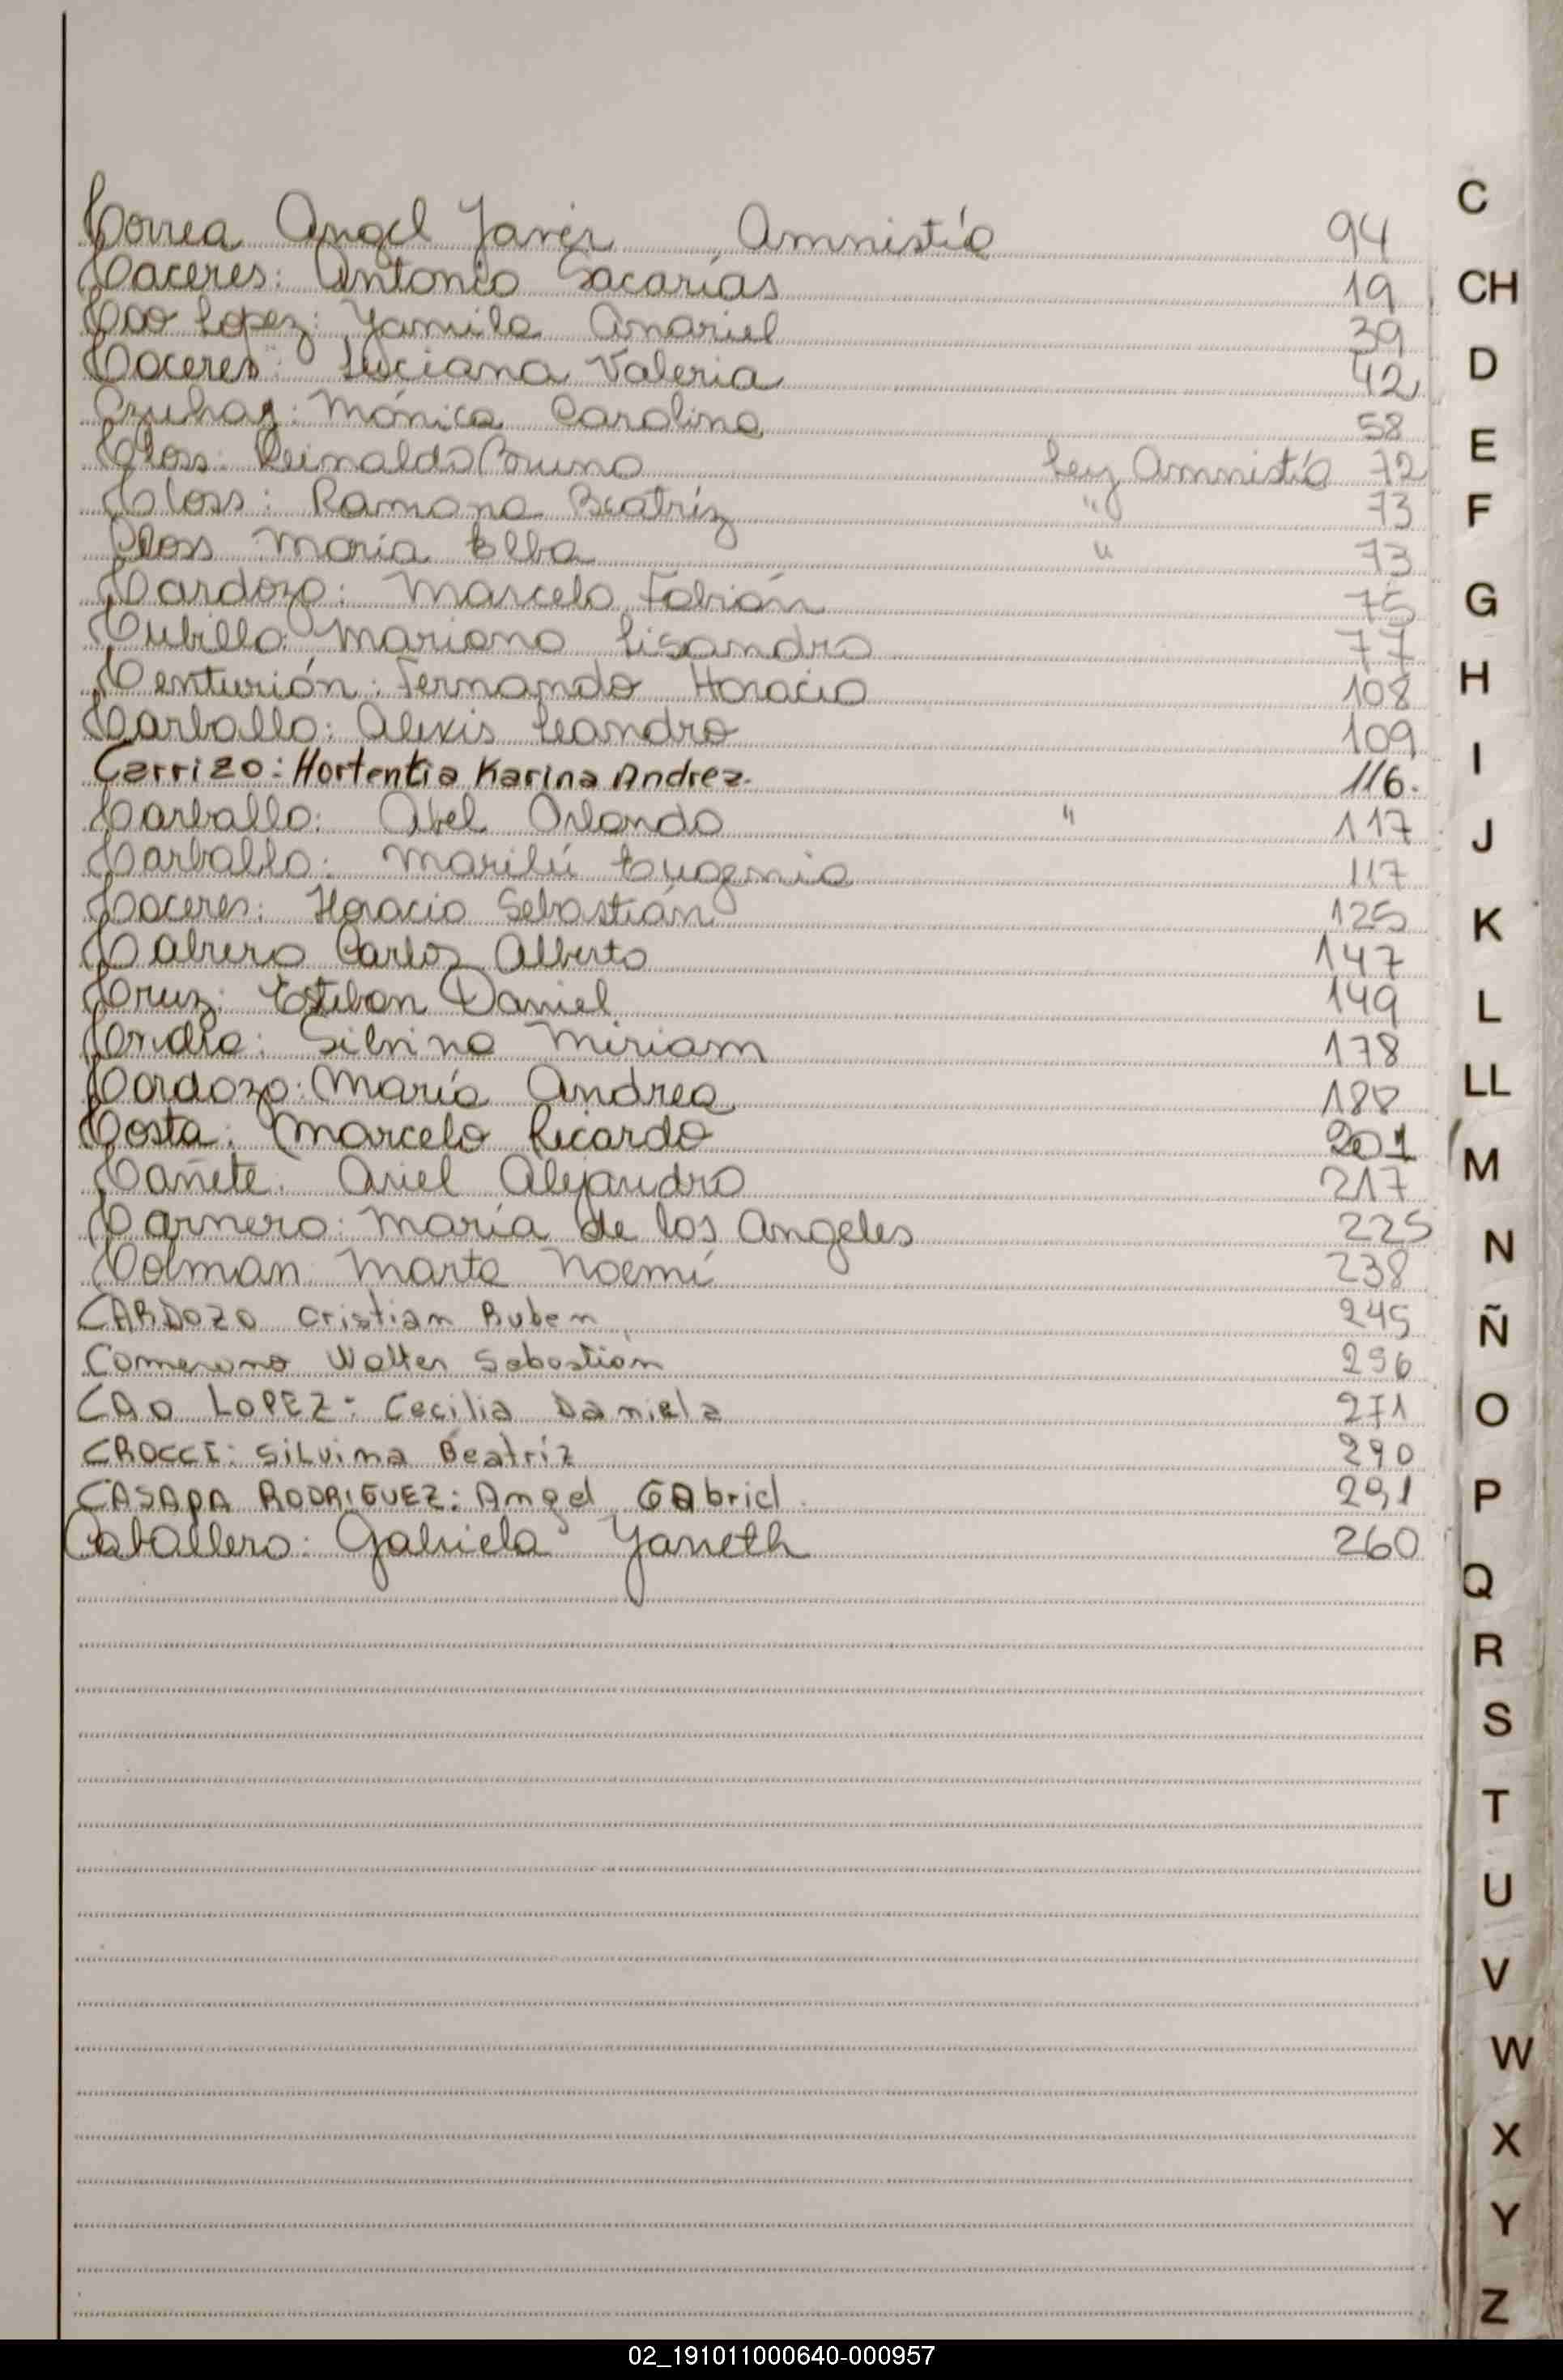 Correa Angel Javier Amnistía 94
Caceres: Antonio Sacarías 19
Cao Lopez: Yamila Anariel 39
Caceres: Luciana Valeria 42
Czuhaj: Mónica Carolina 58
Closs: Reinaldo Bruno Ley Amnistía 72
Closs: Ramona Beatríz " 73
Closs María Elba " 73
Cardozo: Marcelo Fabián 75
Cubilla: Mariano Lisandro 77
Centurión: Fernando Horacio 108
Carballo: Alexis Leandro 109
Carrizo: Hortentia Karina Andrez. 116.
Carballo: Abel Orlando " 117
Carballo: Marilú Eugenia 117
Caceres: Horacio Sebastián 125
Cabrera Carlos Alberto 147
Cruz: Esteban Daniel 149
Silvina Miriam 178
Cardozo: María Andrea 188
Costa: Marcelo Ricardo 201
Cañete: Ariel Alejandro 217
Carnero: María de los Angeles 225
Colman Marta Noemí 238
CARDOZO Cristian Ruben 245
Walter Sebastian 256
CAO LOPEZ: Cecilia Daniela 271
CROCCI: Silvina Beatriz 290
CASAPA RODRIGUEZ: Angel GAbriel. 291
Caballero: Gabriela Yaneth 260
C
CH
D
E
F
G
H
I
J
K
L
LL
M
N
Ñ
O
P
Q
R
S
T
U
V
W
X
Y
Z
02_191011000640-000957